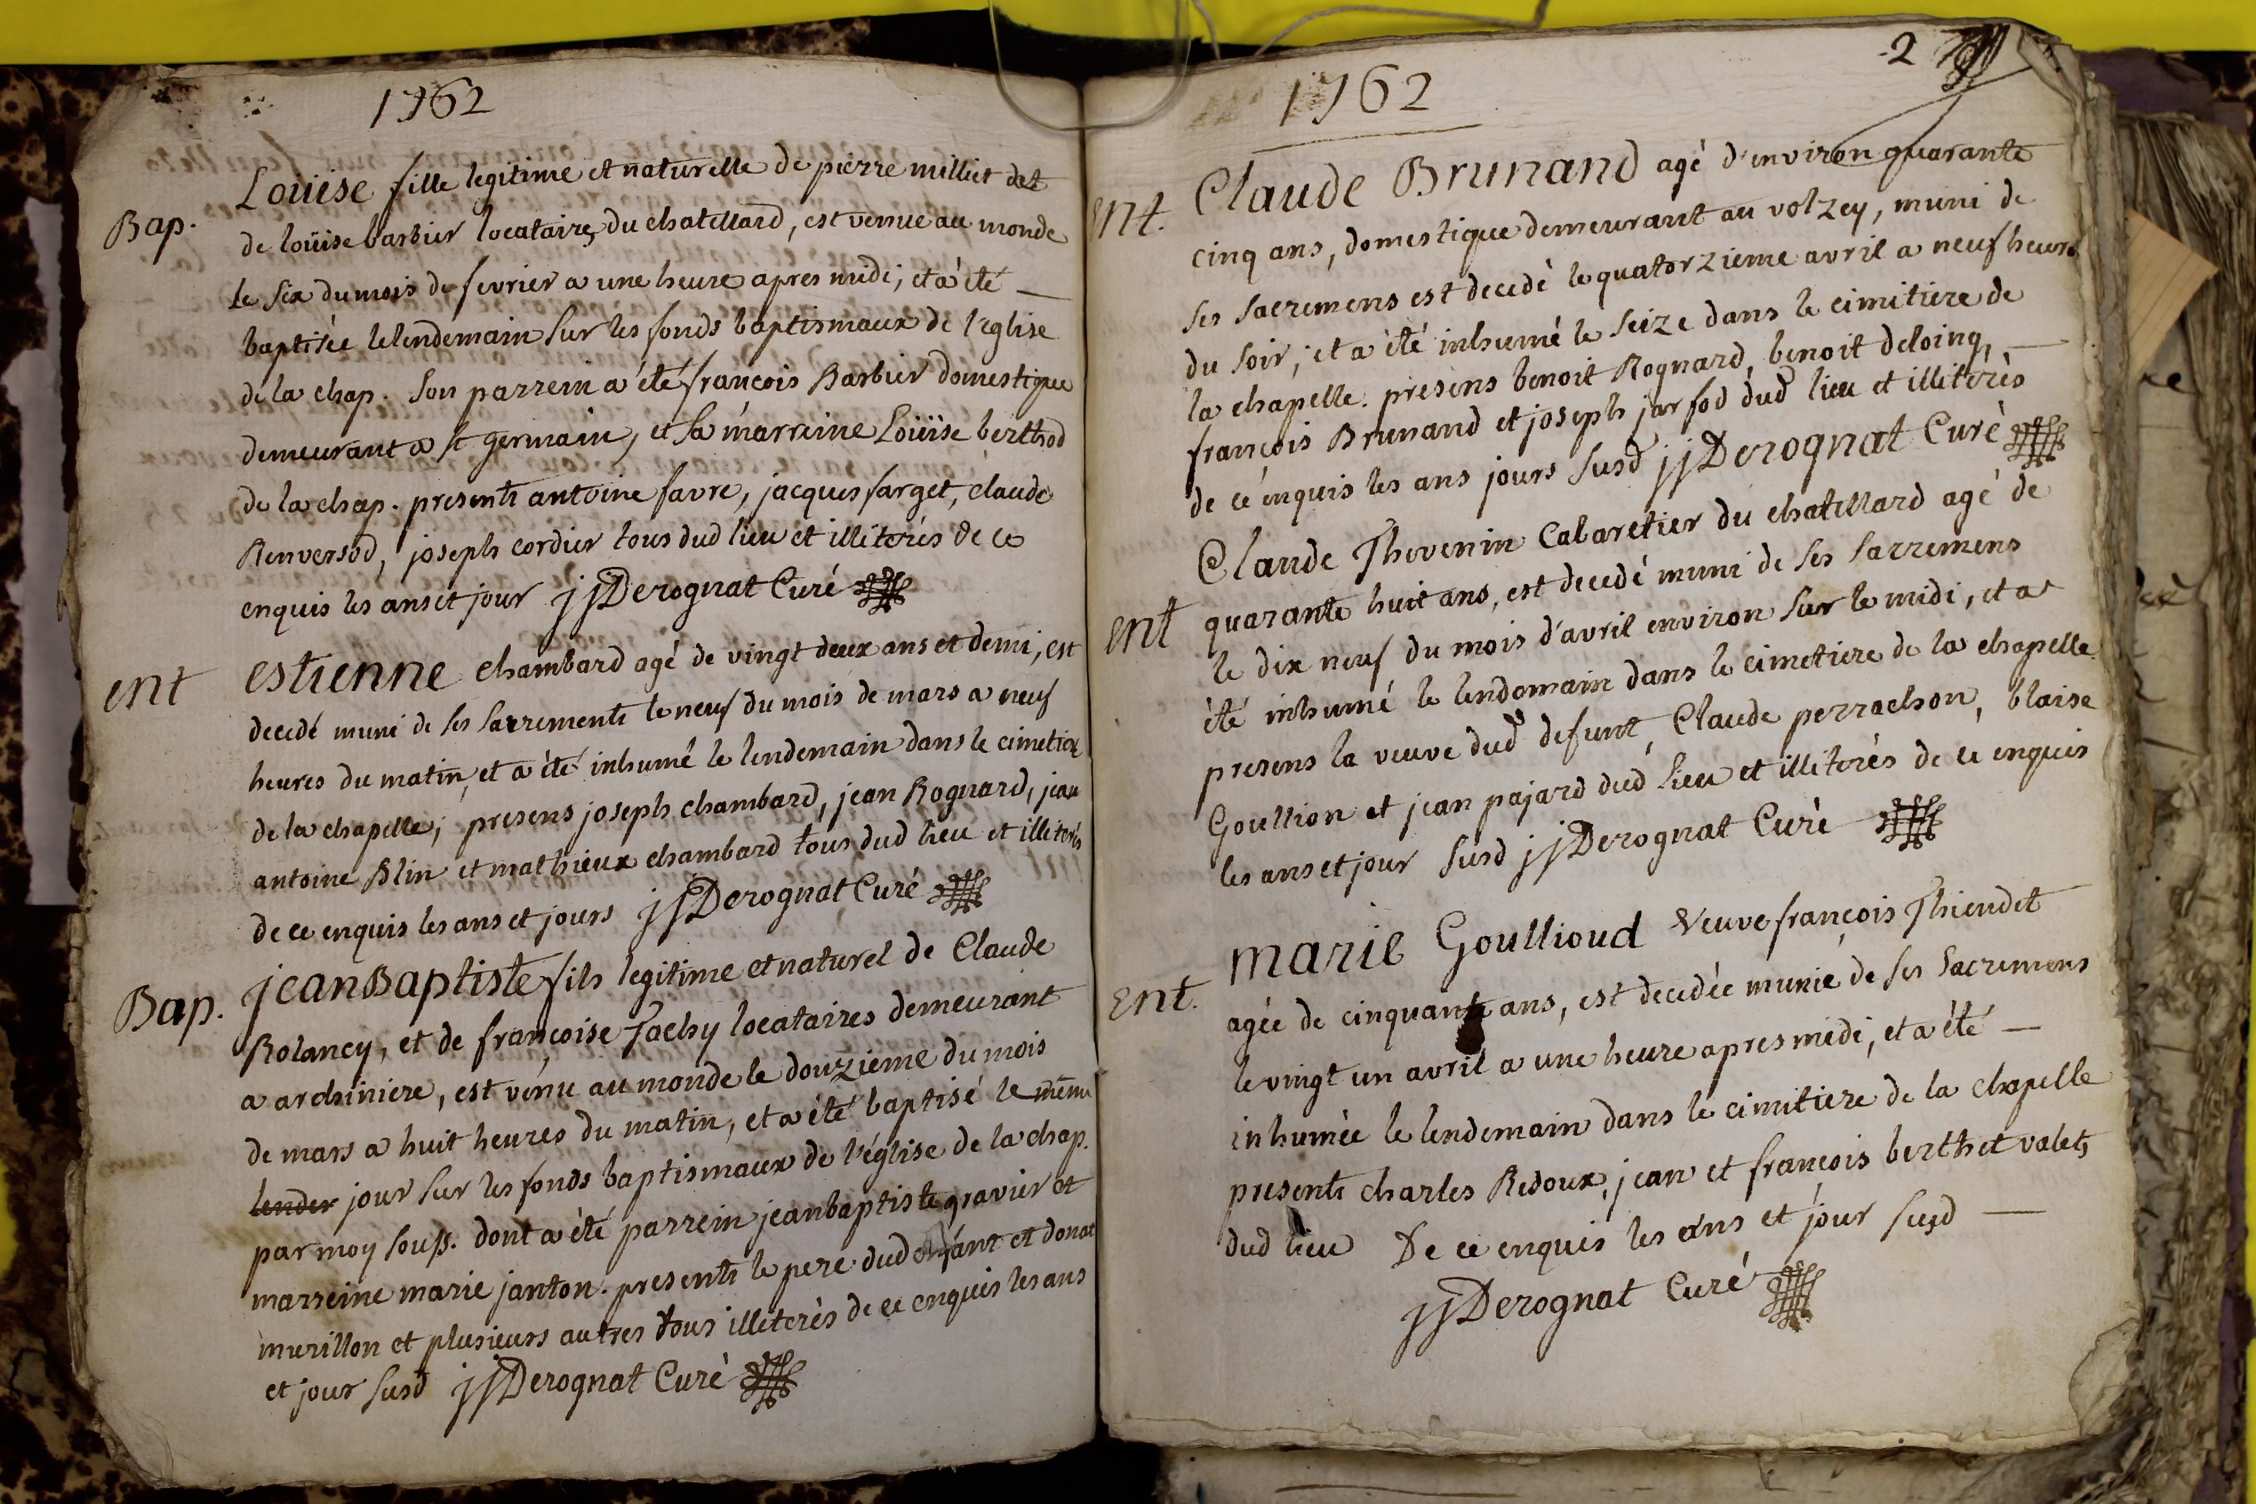 1762
Bap.
Loüise fille legitime et naturelle de pierre milliet et
de loüise barbier locataires du chatellard, est venue au monde
le six du mois de fevrier a une heure apres midi, et a été
baptisée le lendemain sur les fonds baptismaux de l'eglise
de la chap. son parrein a été françois Barbier domestique
demeurant a st germain, et sa marreine Loüise berthod
de la chap. presents antoine favre, jacques farget, claude
Renversod, joseph cordier tous dud lieu et illiterés de ce
enquis les ans et jour jjDerognat Curé
ent
estienne chambard agé de vingt deux ans et demi, est
decedé muni de ses sacrements le neuf du mois de mars a neuf
heures du matin, et a été inhumé le lendemain dans le cimetiere
de la chapelle, presens joseph chambard, jean Rognard, jean
antoine Blin et mathieux chambard tous dud lieu et illiterés
de ce enquis les ans et jours jjDerognat Curé
Bap.
jean Baptiste fils legitime et naturel de Claude
Rolancy, et de françoise Tachy locataires demeurant
a archiniere, est venu au monde le douzieme du mois
de mars a huit heures du matin, et a été baptisé le même
lender jour sur les fonds baptismaux de l'église de la chap.
par moy souss. dont a été parrein jean baptiste gravier et
marreine marie janton. presents le pere dud enfant et donat
murillon et plusieurs autres tous illiterés de ce enquis les ans
et jour susd jjDerognat Curé
2
1762
ent.
Claude Brunand agé d'environ quarante
cinq ans, domestique demeurant au volzey, muni de
ses sacremens est decedé le quatorzieme avril a neuf heures
du soir, et a été inhumé le seize dans le cimitiere de
la chapelle. presens benoit Rognard, benoit deloing,
françois Brunand et joseph jarfod dud lieu et illiterés
de ce enquis les ans jours susd jjDerognat Curé
ent
Claude Thevenin Cabaretier du chatellard agé de
quarante huit ans, est decedé muni de ses sacremens
le dix neuf du mois d'avril environ sur le midi, et a
été inhumé le lendemain dans le cimetiere de la chapelle
presens la veuve dud defunt, Claude perrachon, blaise
Goullion et jean pajard dud lieu et illiterés de ce enquis
les ans et jour susd jjDerognat Curé
ent.
marie Goullioud veuve françois Thiendet
agée de cinquante ans, est decedée munie de ses sacremens
le vingt un avril a une heure apres midi, et a été
inhumée le lendemain dans le cimitiere de la chapelle
presents charles Redoux, jean et françois berthet valets
dud lieu De ce enquis les ans et jour susd
jjDerognat Curé